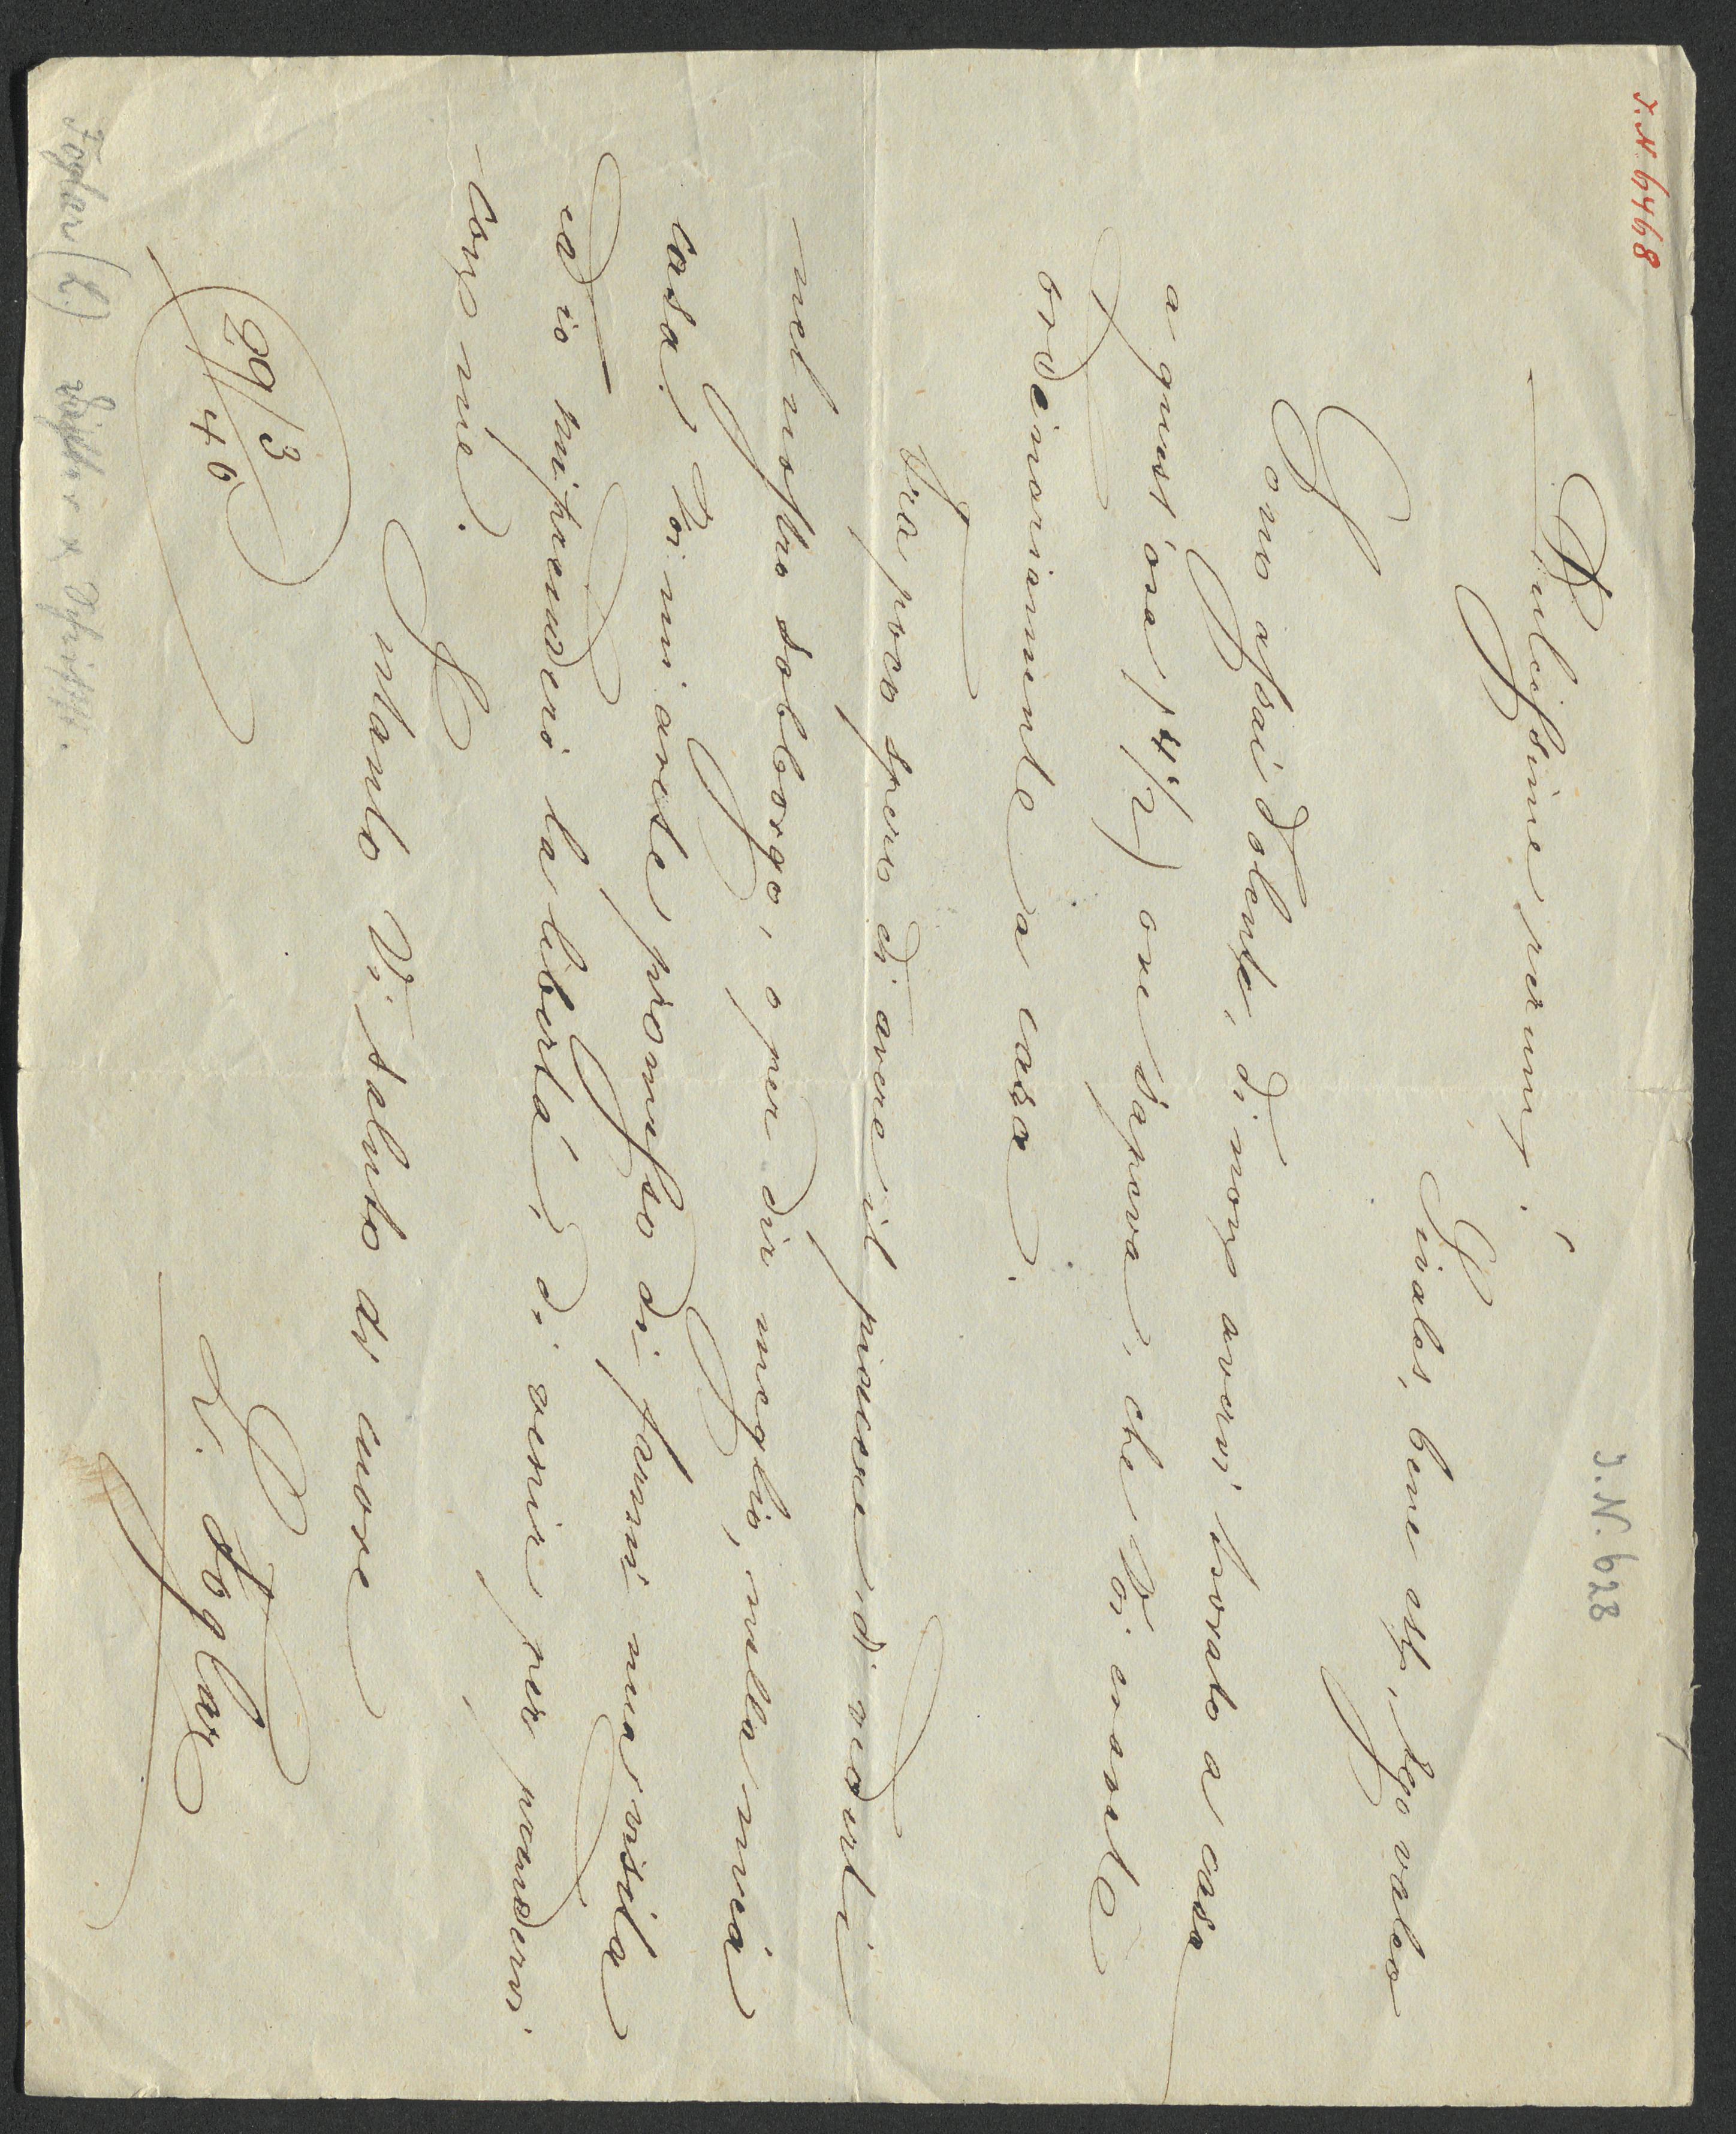 I.N. 69468
I.N. 628
Dulcissime rerum!
Sivales, bene est, ego valeo
Sono assai dolente, di non avervi trovato a casa
a quest' ora (4 1/2) ove sapeva, che Voi eravate
ordinariamente a casa.
Fra poco spero di avere il piacere di vederti
nel nostro sobborgo, o per dir meglio, nella mia
casa. Voi mi avete promesso di farmi una visita
ed io mi prenderò la libertà, di venir per prendervi
con me.
Intanto Vi saluto di cuore
29/3 40
L. Foglar
Foglar (L.)